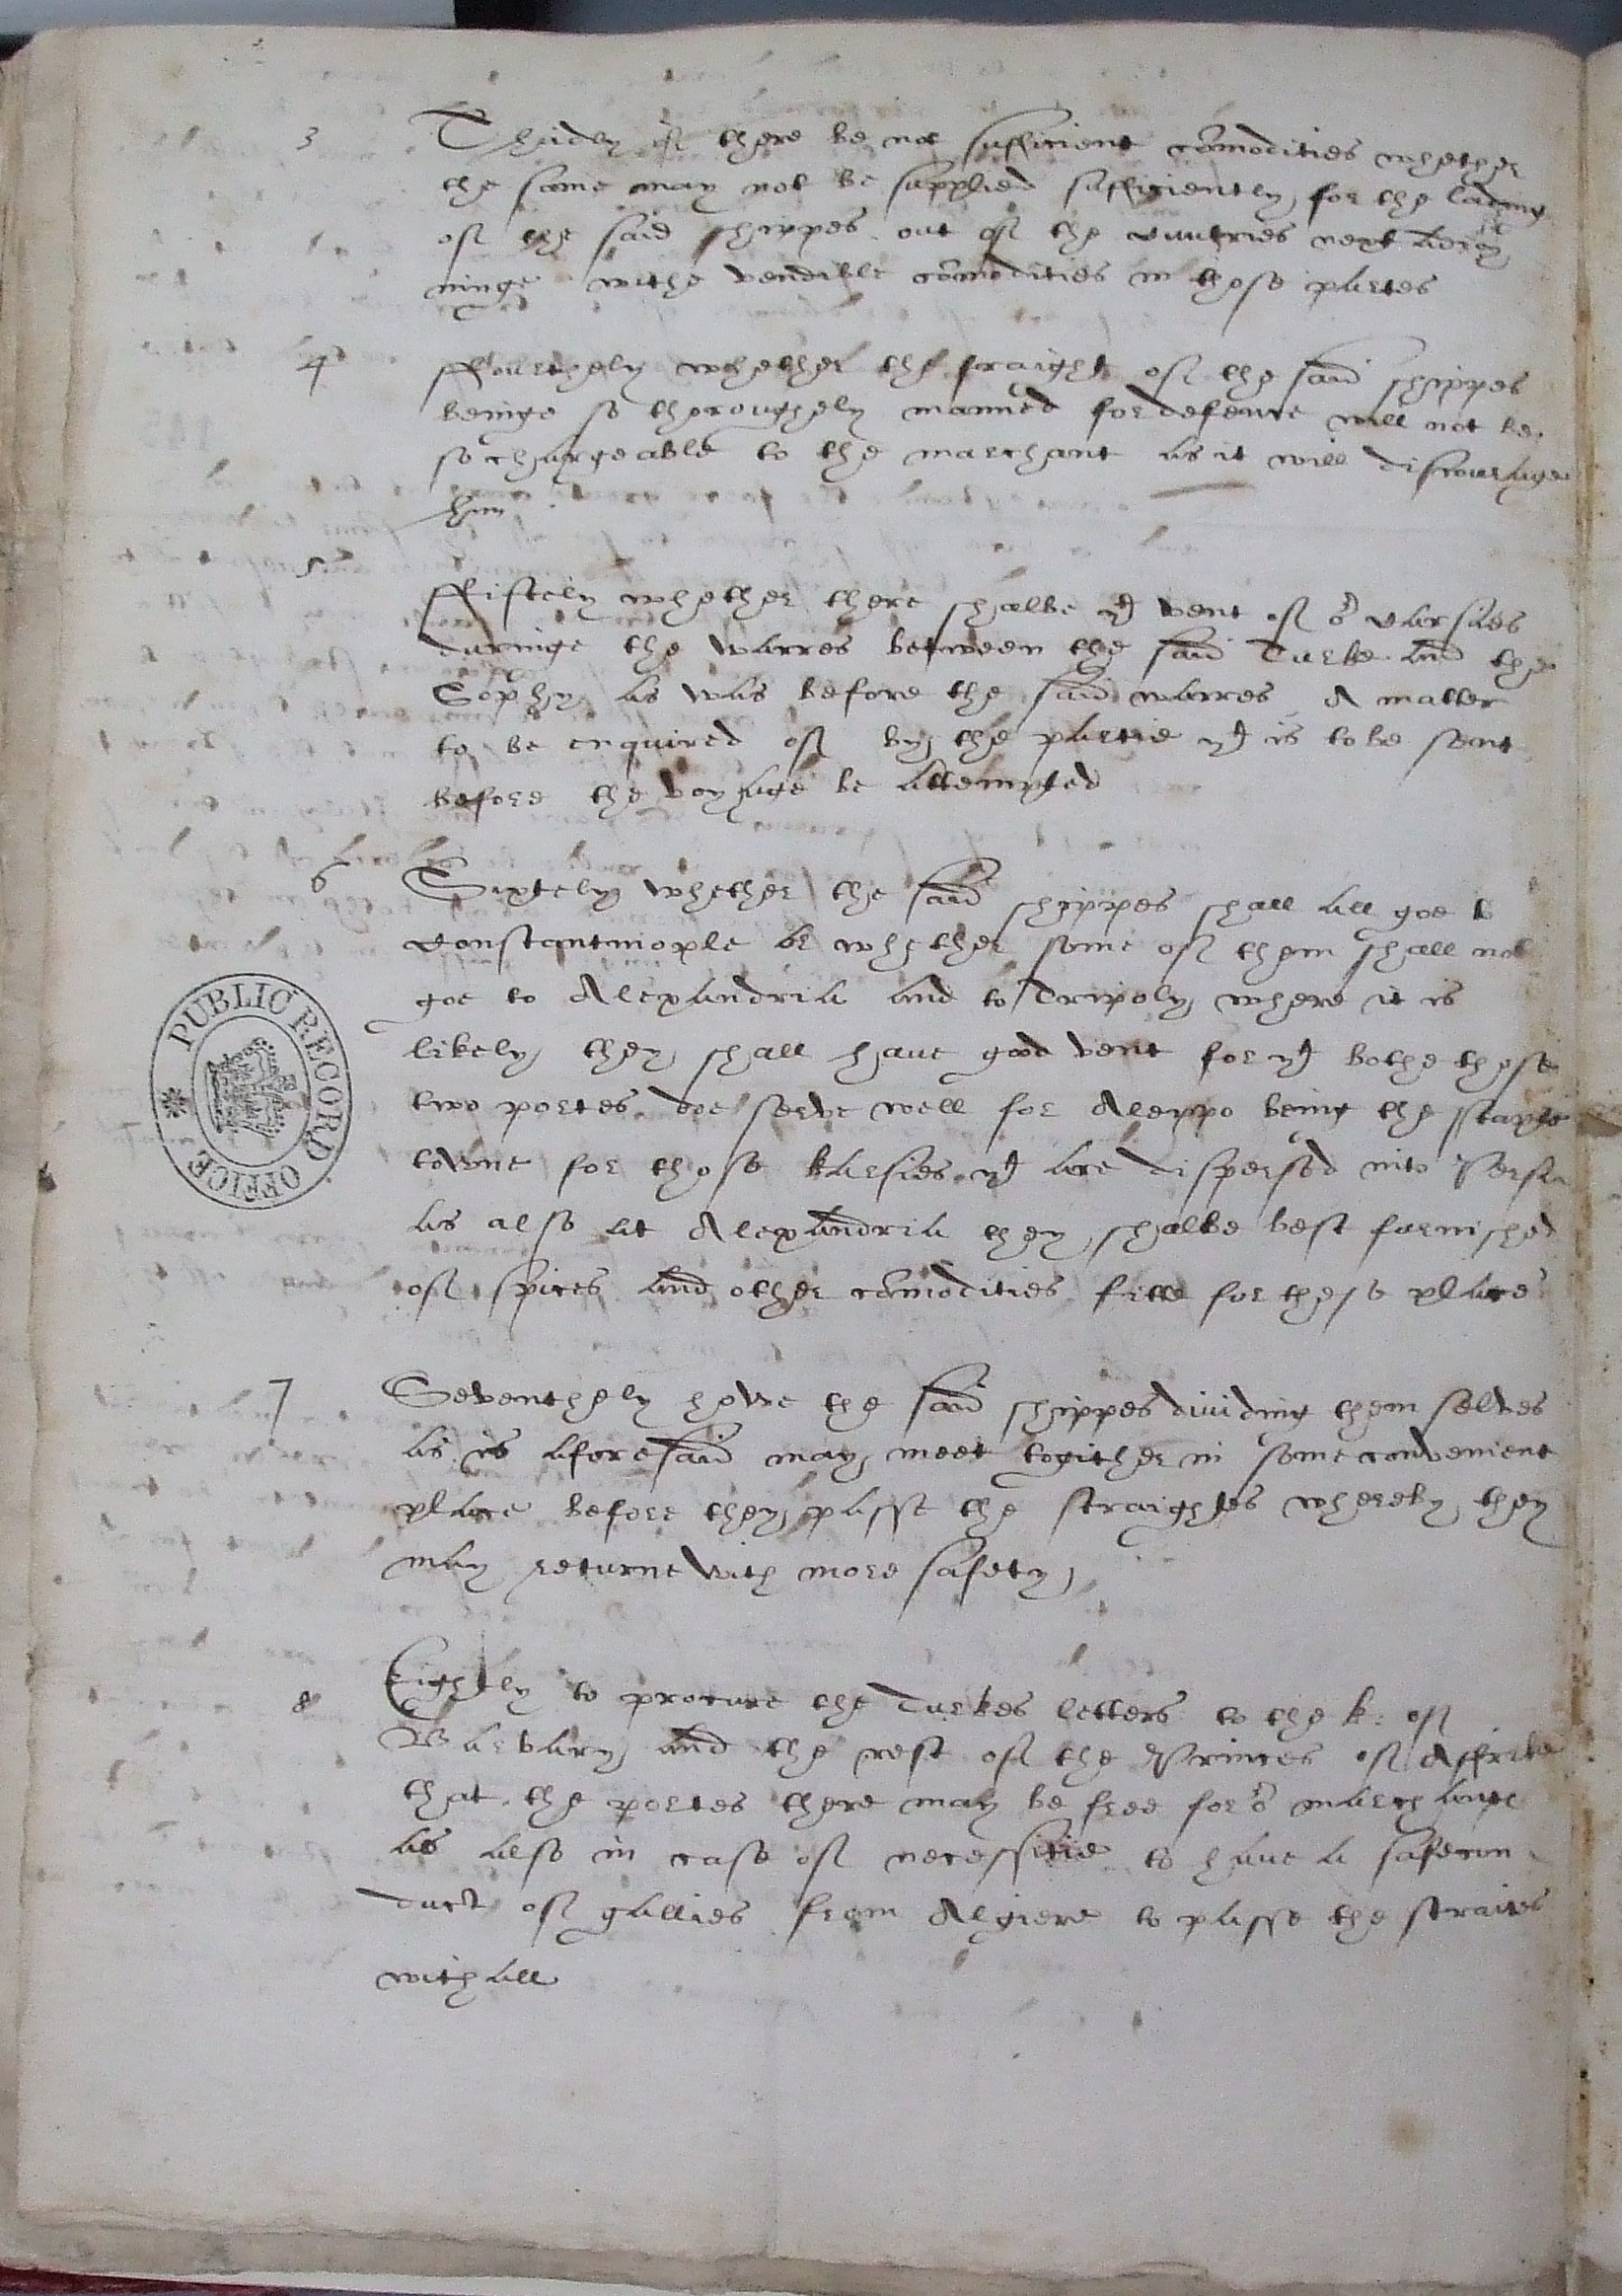 3 Thirdly if there be not sufficient comodities whether
the same may not be supplied sufficiently for the lading
of the said shippes out of the cuntries next adioy
ninge withe vendible comodities in those partes
4 ffourthely whether the fraight of the said shippes
beinge so thoroughely manned for defence will not be
so chargeable to the marchant as it will discourage
him
5 ffiftely whether there shalbe yt vent of or carsies
duringe the warres between the said Turke and the
Sophy as was before the said warres A matter
to be enquired of by the partie yt is to be sent
before the voyage be attempted
6 Sixtely whether the said shippes shall all goe to
Constantinople or whether some of them shall not
goe to Alexandria and to Tripoly where it is
likely they shall have good vent for yt bothe those
two portes doe serve well for Aleppo being the staple
towne for those karsies yt are dispersed into Persia
as also at Alexandria they shalbe best furnished
of spices and other comodities fitte for these place
7 Seventhely howe the said shippes dividing them selves
as is aforesaid may meet togither in some convenient
place before they passe the straightes whereby they
may returne with more safety
8 Eightly to procure the Turkes letters to the k: of
Barbary and the rest of the Princes of Affrike
that the portes there may be free for or marchantes
as also in case of necessitie to have a safecon
duct of gallies from Algiere to passe the straites
withall
PUBLIC RECORD OFFICE